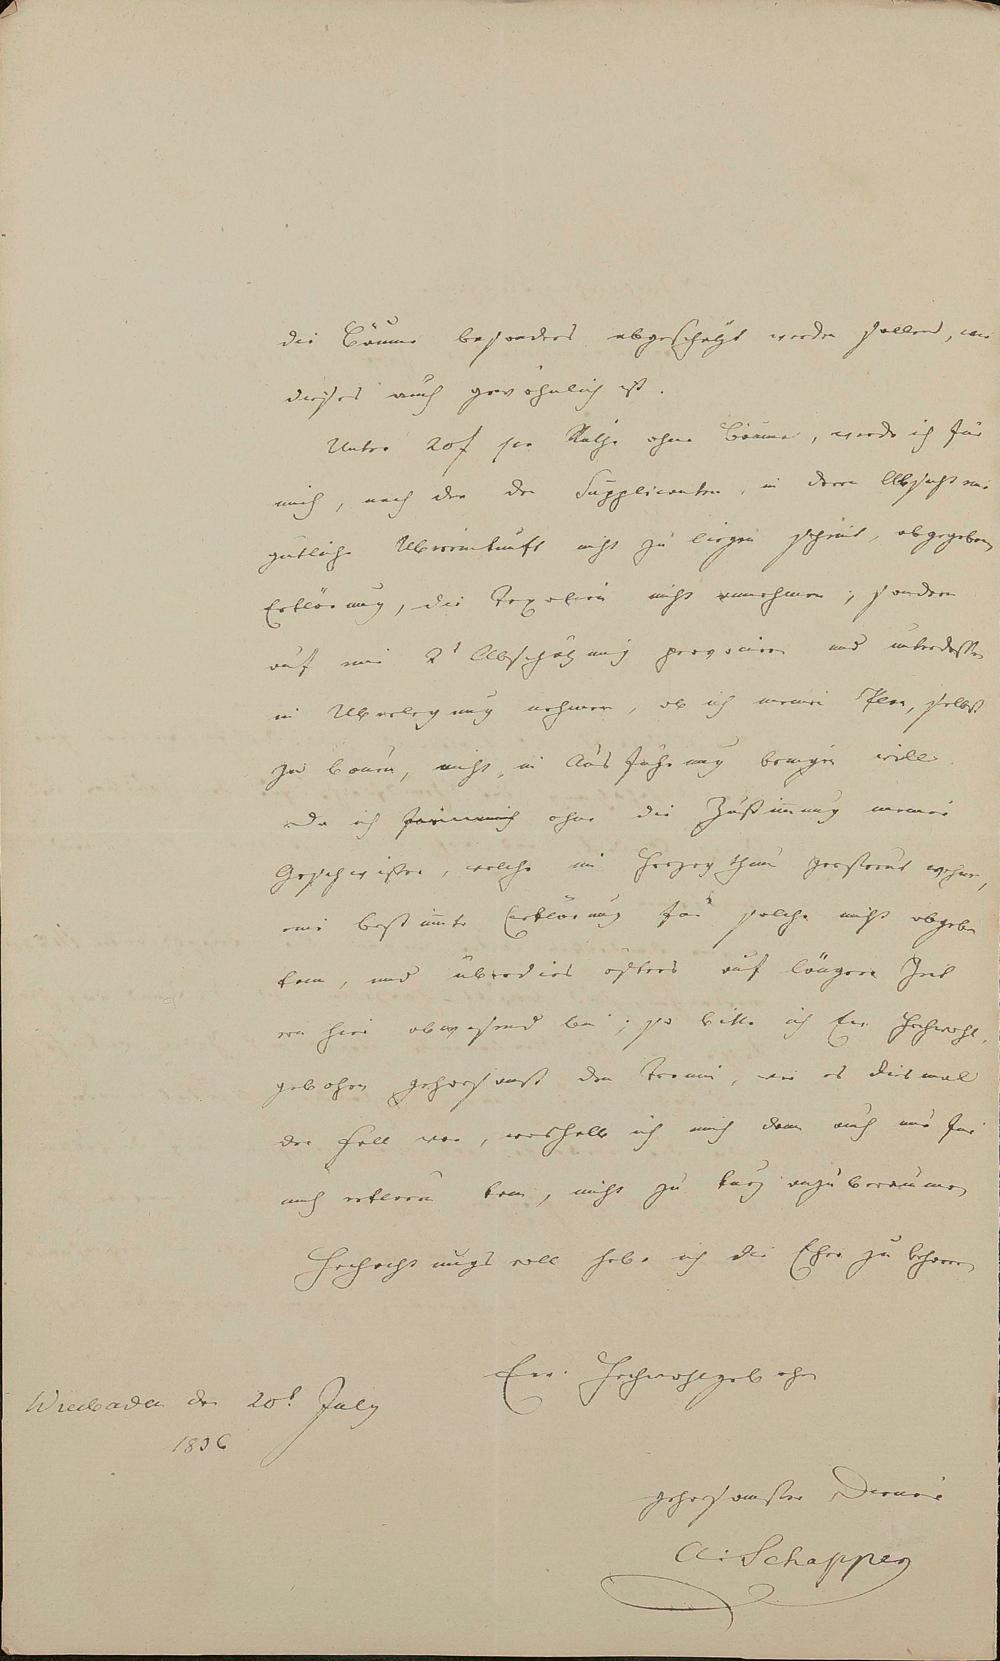 die Bäume besonders abgeschätzt werden sollen, wie
dieses auch gewöhnlich ist.
Unter 20 f per Ruthe ohne Bäume, werde ich für
mich, nach der der Supplicanten, in deren Absicht eine
gütliche Übereinkunft nicht zu liegen scheint, abgegebenen
Erklärung, die Taxation nicht annehmen; sondern
auf eine 2t Abschätzung provociren und unterdessen
in Überlegung nehmen, ob ich meinen Plan, selbst
zu bauen, nicht in Ausführung bringen will.
Da ich für mich ohne die Zustimmung meiner
Geschwister, welche im Herzogthum zerstreut wohnen,
eine bestimmte Erklärung für solche nicht abgeben
kann, und überdies öfters auf längere Zeit
von hier abwesend bin; so bitte ich Ew. Hochwohl
gebohren gehorsamst den Termin, wie es diesmal
der Fall war, weshalb ich mich dann auch nur für
mich erklären kann, nicht zu kurz anzuberaumen
Hochachtungsvoll habe ich die Ehre zu beharren
Ew. Hochwohlgebohren
Wiesbaden den 20t July
1836
gehorsamster Diener
A: Schapper